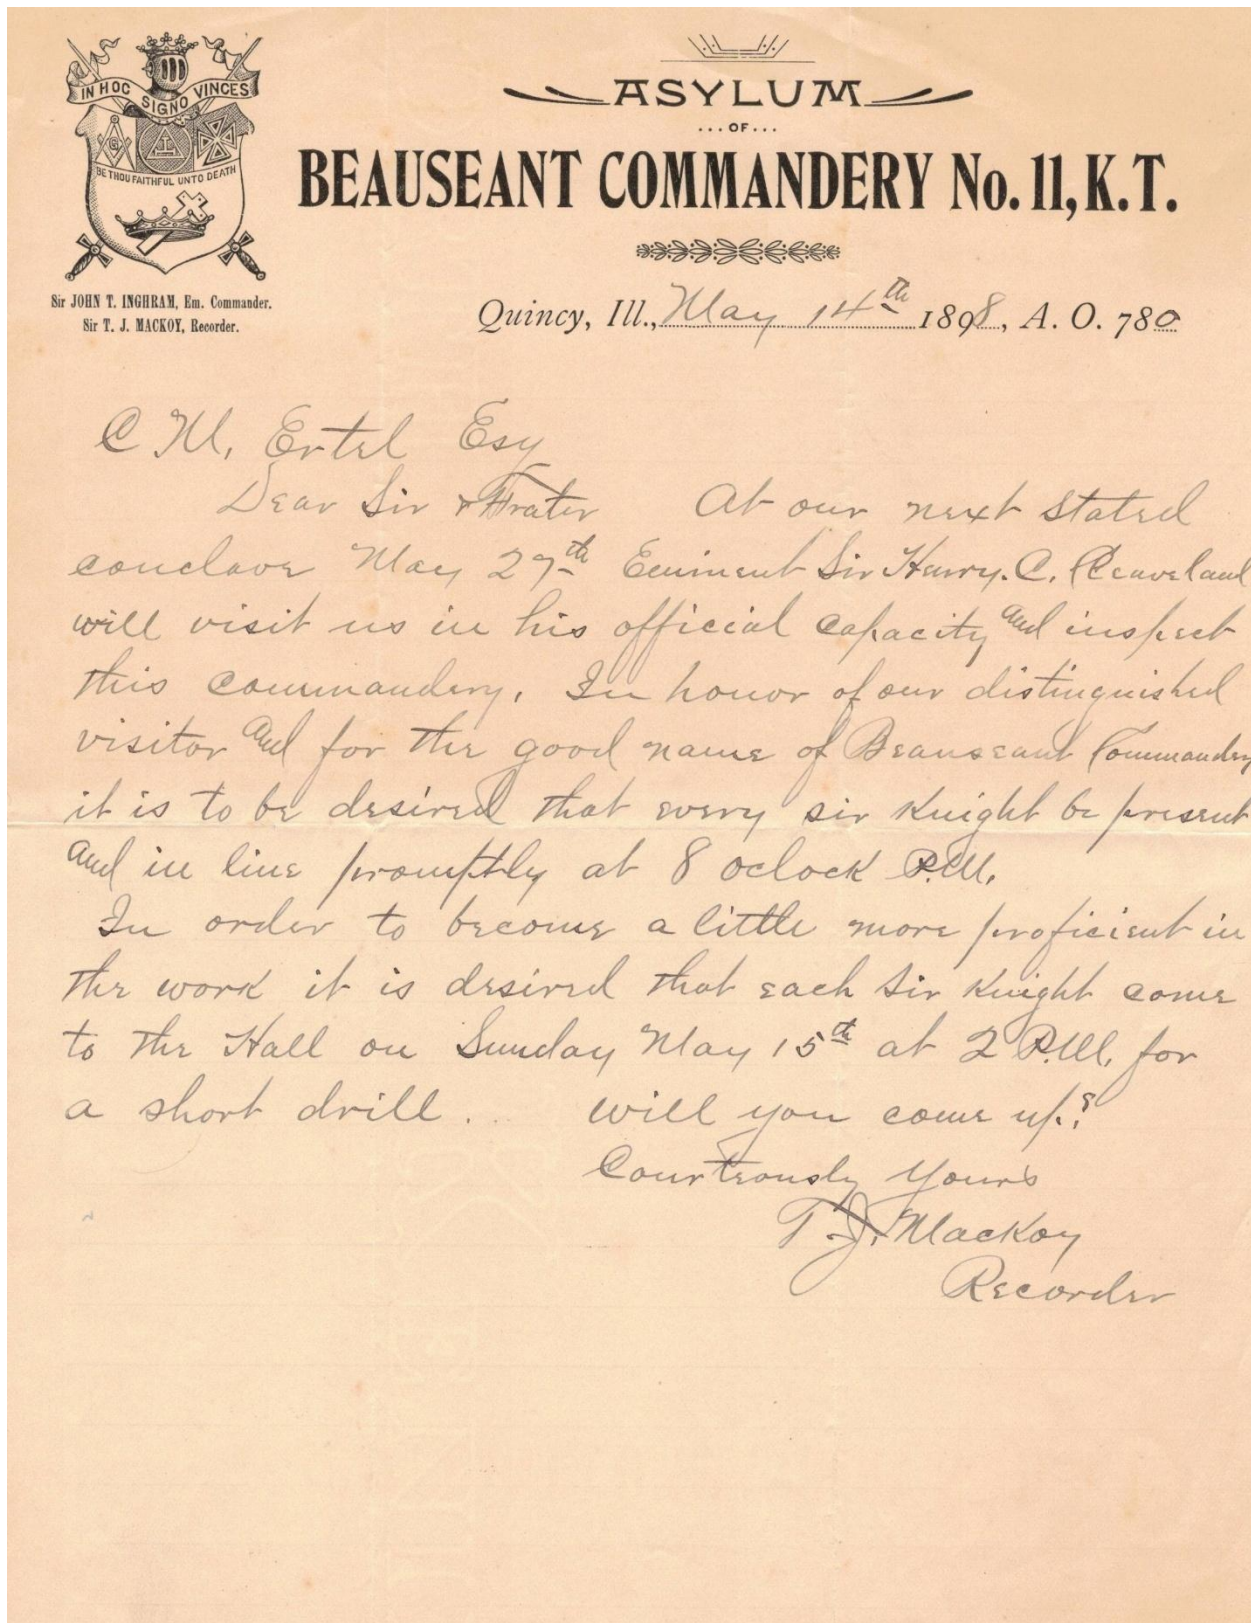 IN HOC SIGNO VINCES
G
BE THOU FAITHFUL UNTO DEATH
Sir JOHN T. INGHRAM, Em. Commander.
Sir T. J. MACKOY, Recorder.
ASYLUM
...OF...
BEAUSEANT COMMANDERY No. 11, K. T.
Quincy, Ill., May 14th 1898, A. O. 780
C M. Ertel Esq
Dear Sir & Frater At our next stated
conclave May 27th Eminent Sir Henry. C. Cleaveland
will visit us in his official capacity and inspect
this commandery. In honor of our distinguished
visitor and for the good name of Beauseant Commandery
it is to be desired that every sir Knight be present
and in line promptly at 8 oclock P.M.
In order to become a little more proficient in
the work it is desired that each Sir Knight come
to the Hall on Sunday May 15th at 2 P.M. for
a short drill. will you come up?
Courteously Yours
T. J. Mackoy
Recorder